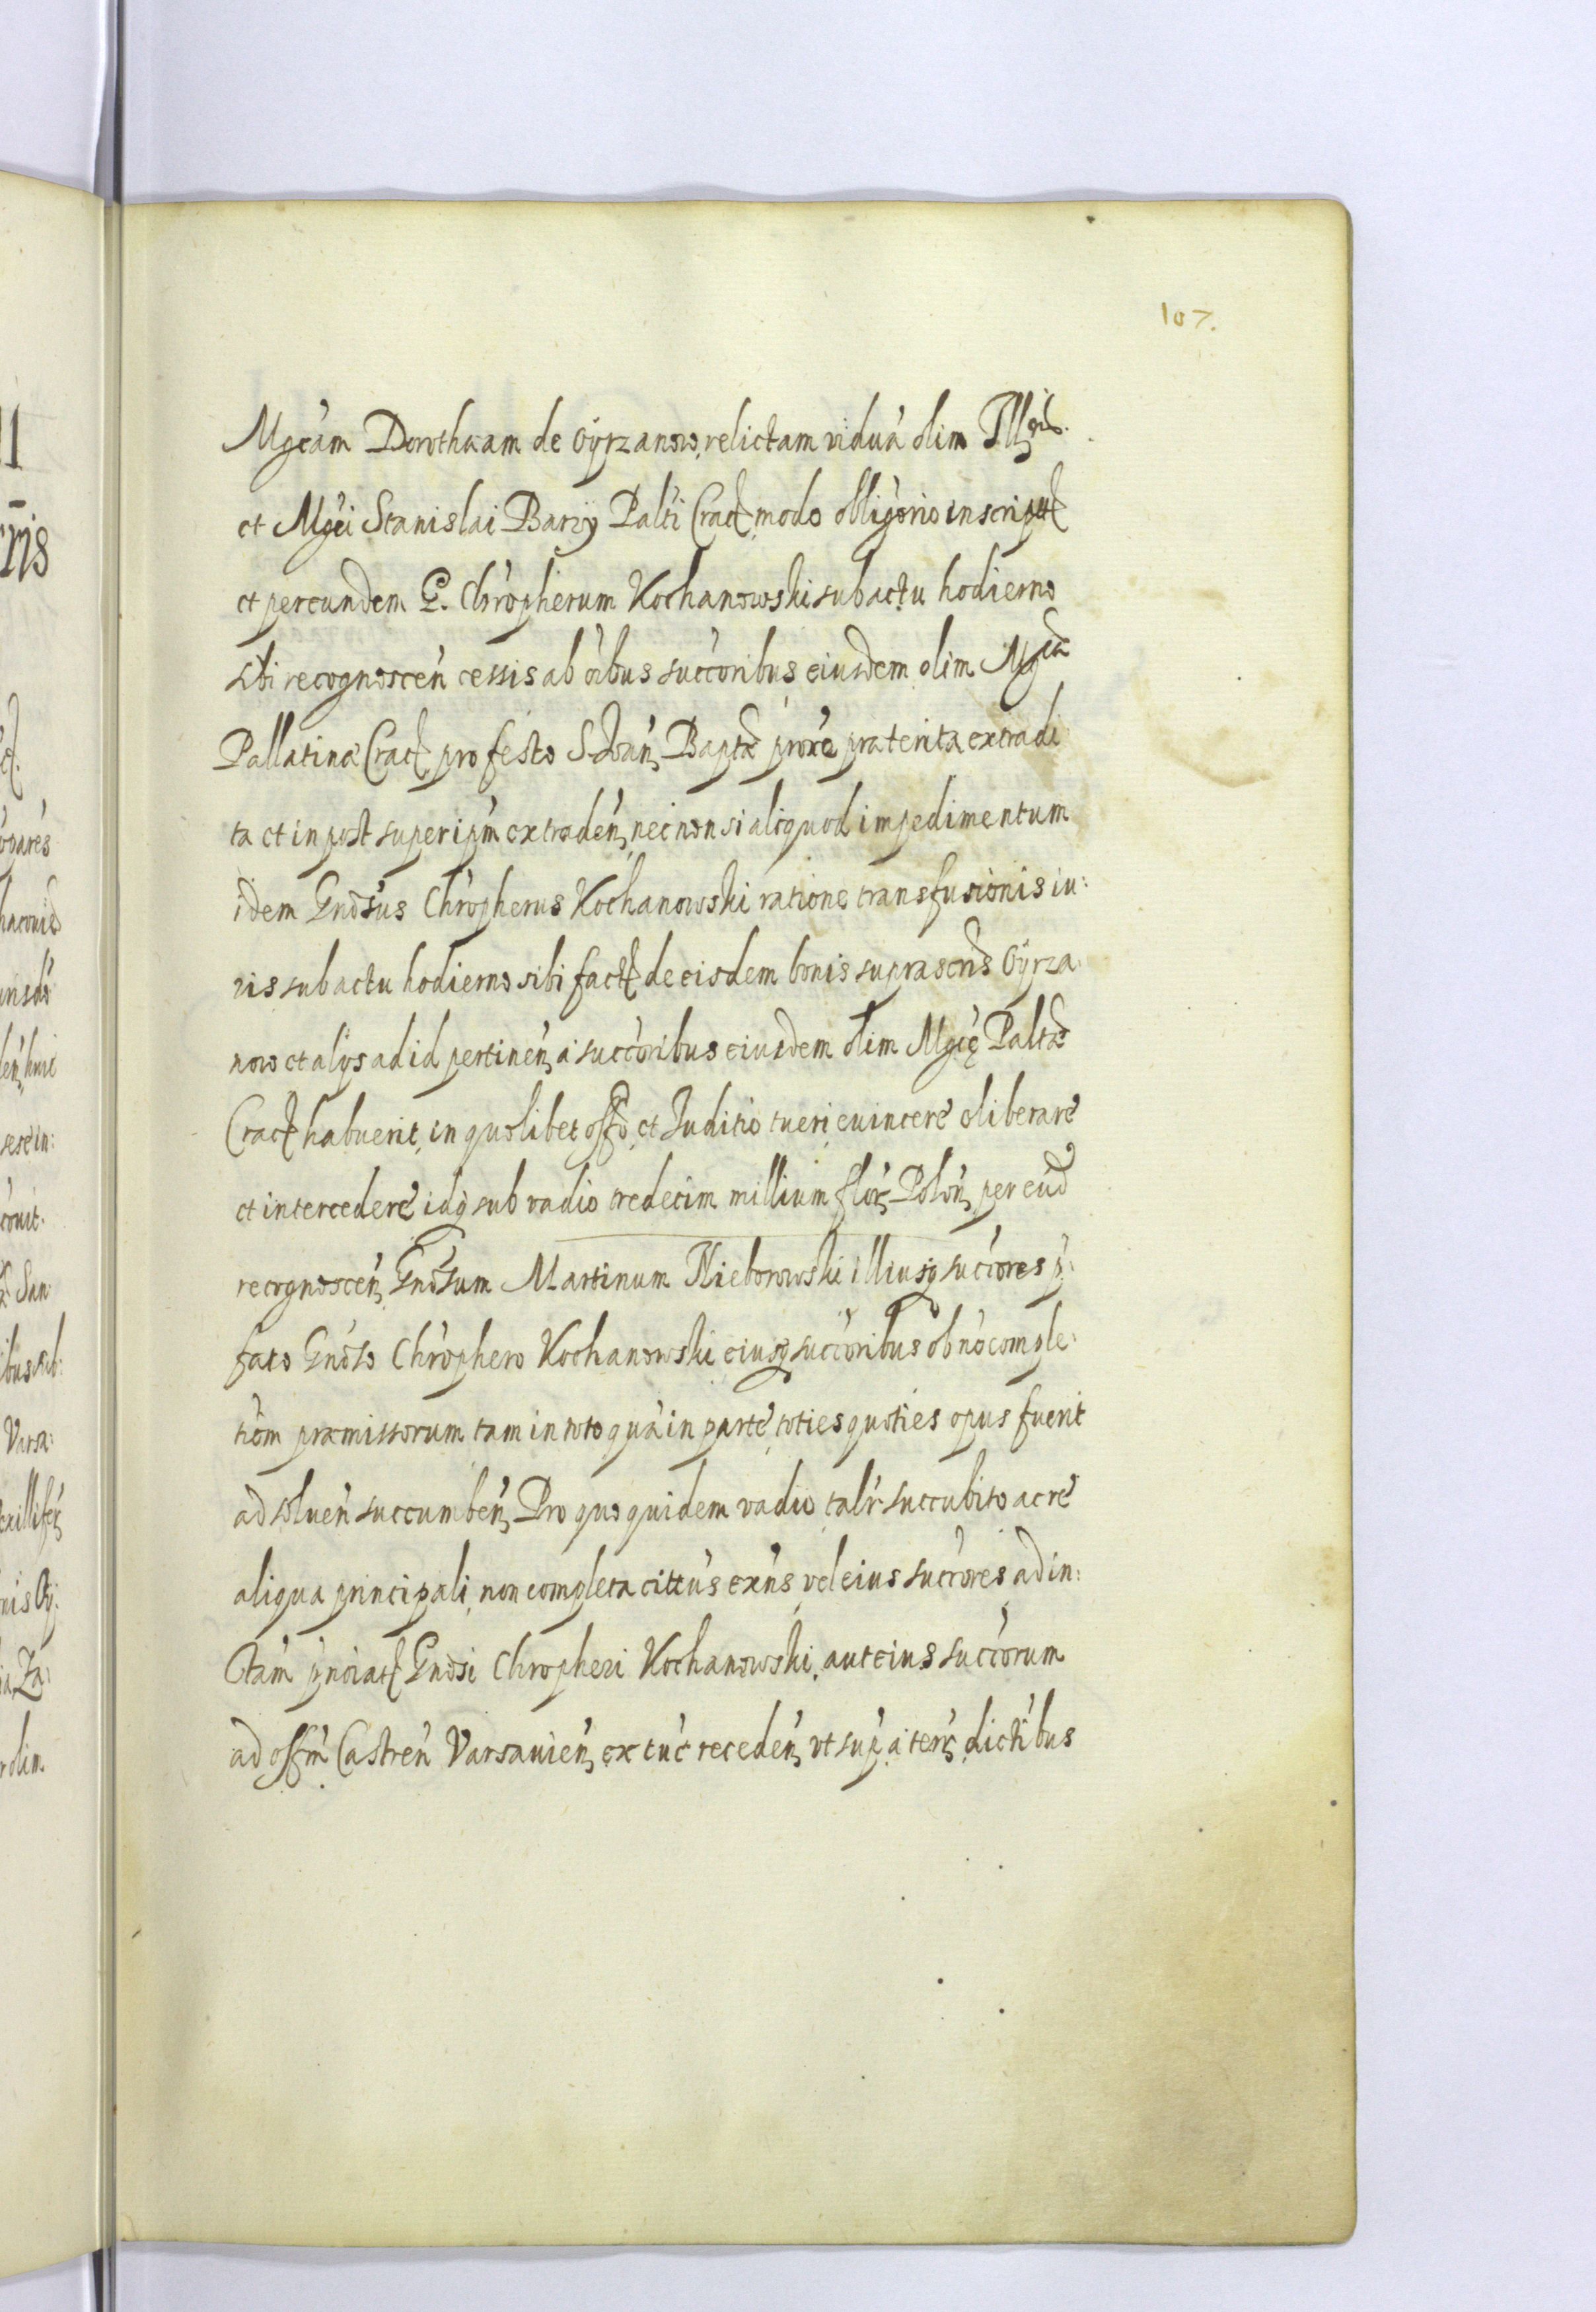 107.
Mgcam Dorothæam de Oÿrzanow, relictam viduā olim Illris.
et Mgci Stanislai Barzÿ Palti Crac modo obligorio inscript
et per eundem G. Chropherum Kochanowski sub actu hodierno
sibi recognoscen cessis ab oibus succoribus eiusdem olim Mgcæ
Pallatinæ Crac pro festo S. Joan Baptæ proxe præterita extradi
ta et in post super ipm extraden, nec non si aliquod impedimentum
idem Gnosus Chropherus Kochanowski ratione transfusionis iu:
ris sub actu hodierno sibi fact de eisdem bonis suprascris Oÿrza:
now et alijs ad id pertinen, a succoribus eiusdem olim Mgcę Paltæ
Crac habuerit, in quolibet offo, et Juditio tueri, euincere, oliberare
et intercedere, idq sub vadio tredecim millium flor Polon, per eud
recognoscen, Gnosum Martinum Nieborowski illiusq succores p
fato Gnoso Chrophero Kochanowski eiusq succoribus ob nocomple:
tiom præmissorum tam in toto quā in parte, toties quoties opus fuerit
ad soluen succumben, Pro quo quidem vadio talr succubito ac re
aliqua principali, non completa cittus exns vel eius succores, ad in:
stam pnoiat Gnosi Chropheri Kochanowski, aut eius succorum
ad offm Castren Varsauien, ex tuc receden, vt sup a ters dictibus